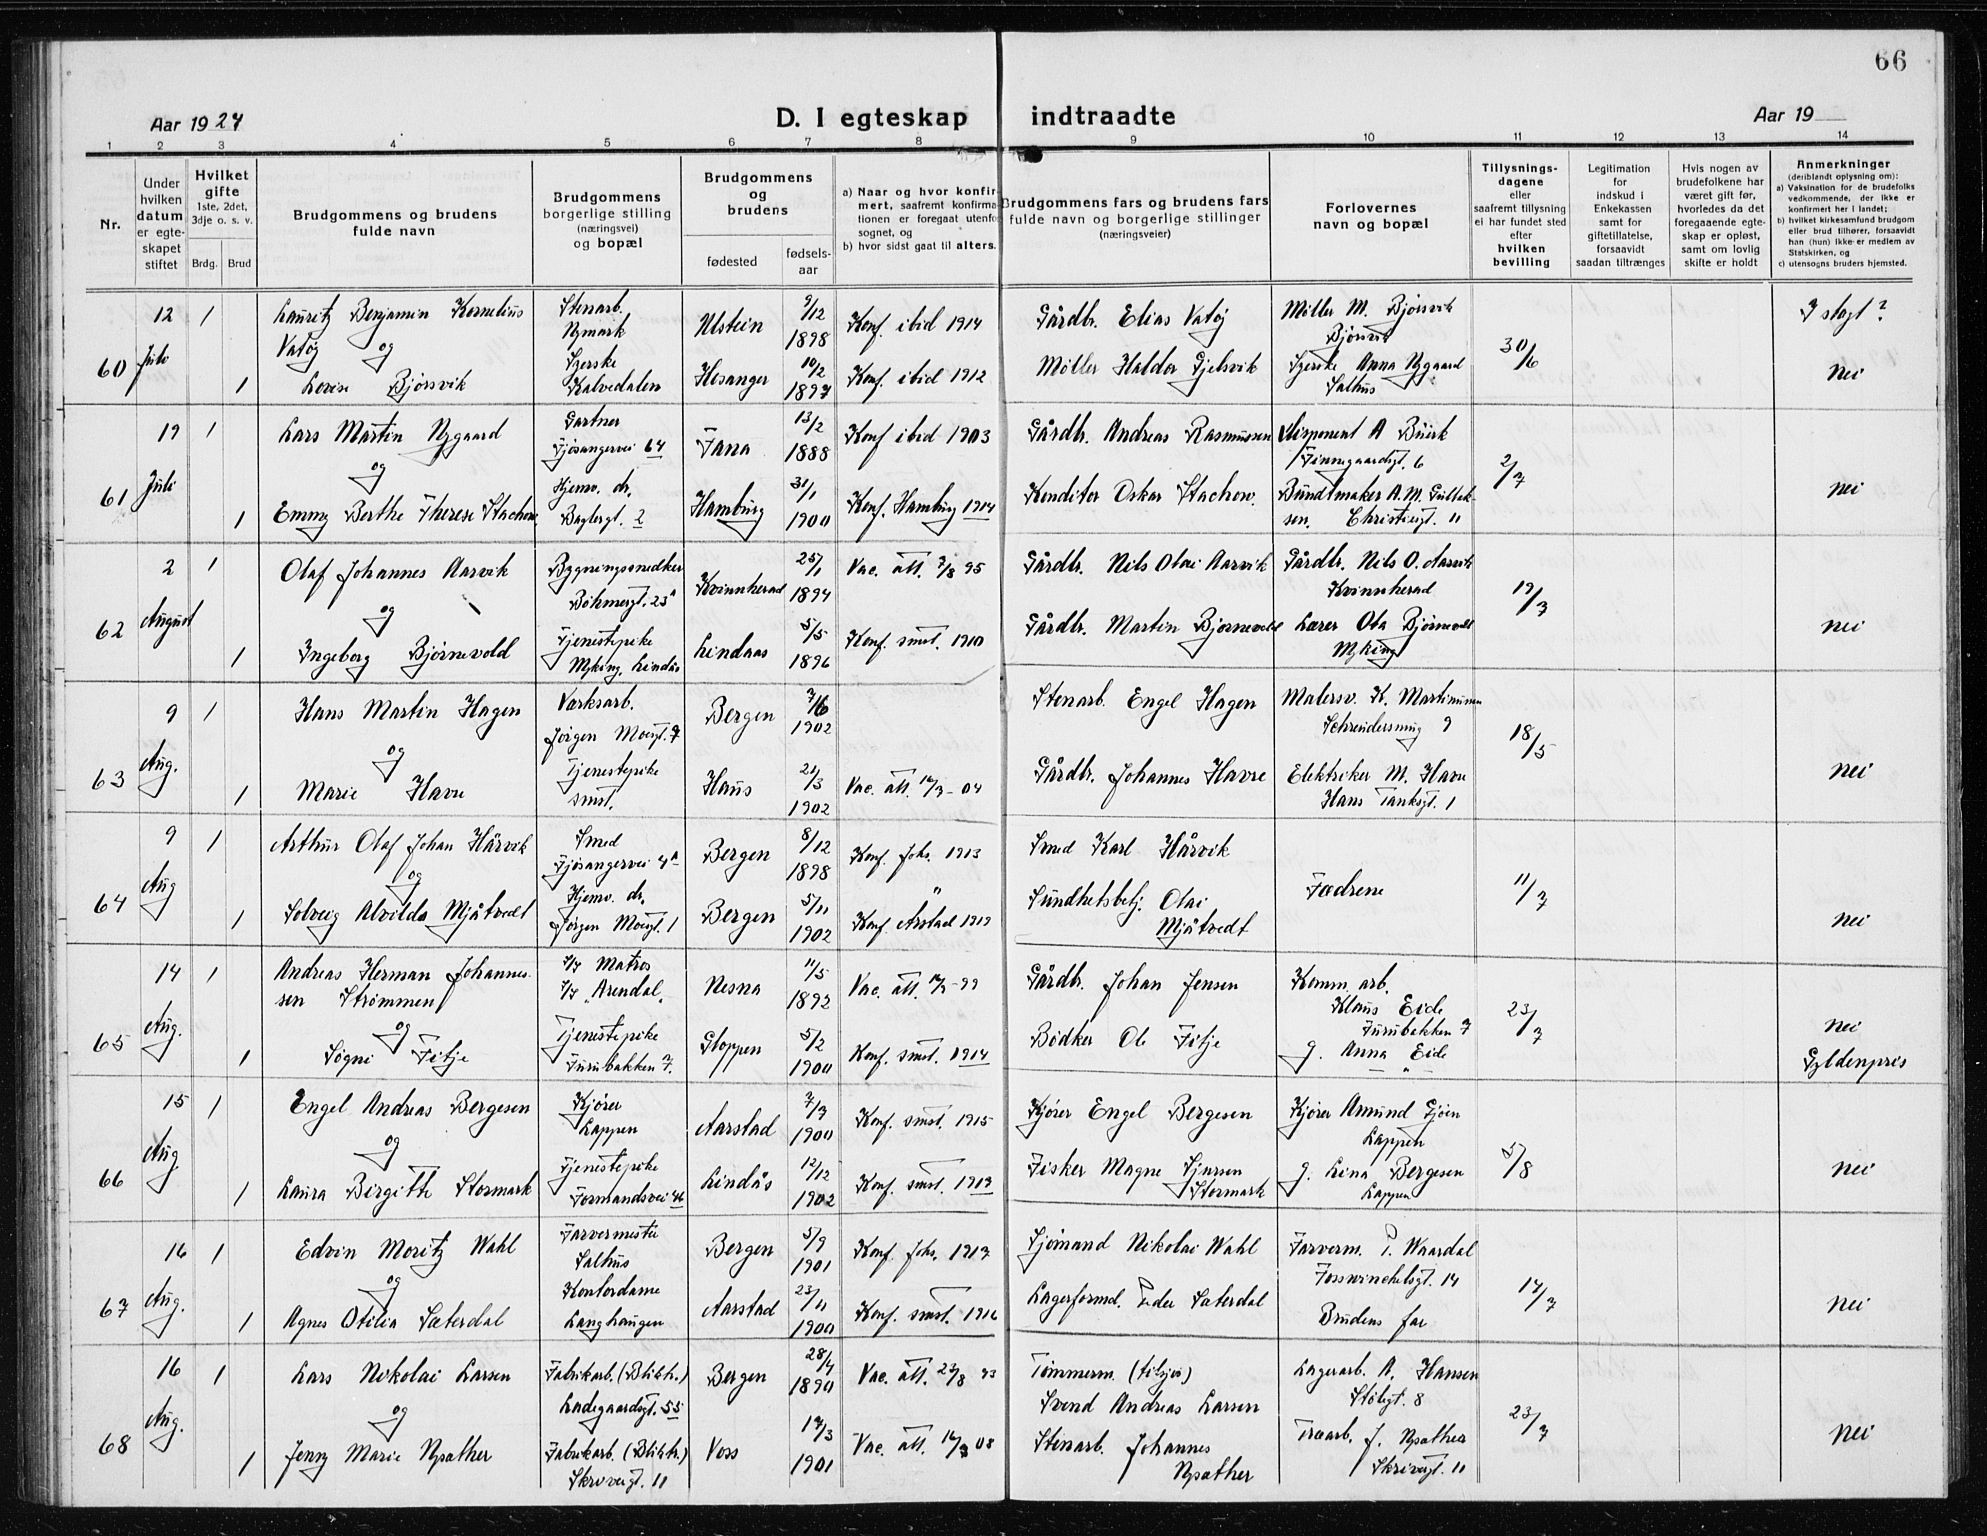 66
Aar 1924
D. I egteskap indtraadte
Aar 19
1 2 3 4 5 6 7 8 9 10 11 12 13 14
Nr.
Under
hvilken
datum
er egte-
skapet
stiftet
Hvilket
gifte
1ste, 2det,
3dje o. s. v.
Brdg. Brud
Brudgommens og brudens
fulde navn
Brudgommens
borgerlige stilling
(næringsvei)
og bopæl
Brudgommens
og
brudens
fødested
fødsels-
aar
a) Naar og hvor konfir-
mert, saafremt konfirma-
tionen er foregaat utenfor
sognet, og
b) hvor sidst gaat til alters.
Brudgommens fars og brudens fars
fulde navn og borgerlige stillinger
(næringsveier)
Forlovernes
navn og bopæl
Tillysnings-
dagene
eller
saafremt tillysning
ei har fundet sted
efter
hvilken
bevilling
Legitimation
for
indskud i
Enkekassen
samt for
giftetillatelse,
forsaavidt
saadan tiltrænges
Hvis nogen av
brudefolkene har
været gift før,
hvorledes da det
foregaaende egte-
skap er opløst,
samt om lovlig
skifte er holdt
Anmerkninger
(deriblandt oplysning om):
a) Vaksination for de brudefolks
vedkommende, der ikke er
konfirmert her i landet;
b) hvilket kirkesamfund brudgom
eller brud tilhører, forsaavidt
han (hun) ikke er medlem av
Statskirken, og
c) utensogns bruders hjemsted.
60
12
Juli
1
1
Lauritz Benjamin Kornelius
Vatøy og
Lovise Bjørsvik
Stenarb.
Nymark
Syerske
Kalvedalen
Ulstein
9/12
1898
Hosanger
10/2
1897
Konf. ibid 1914
Konf. ibid 1912
Gårdbr. Elias Vatøy
Møller Haldor Gjelsvik
Møller M. Bjørsvik
Bjørsvik
Syerske Anna Nygaard
Salhus
30/6
I slagt?
Nei
61
19
Juli
1
1
Lars Martin Nygaard
og
Emmy Berthe Therese Stachow
Gartner
Fjøsangervei 64
Hjemv. dr.
Baglergt. 2
Fana
13/2
1888
Hamburg
31/1
1900
Konf ibid 1903
Konf. Hamburg 1914
Gårdbr. Andreas Rasmussen
Konditor Oskar Stachow.
Disponent A Büirk
Finnegaardsgt. 6
Buntmaker A. M. Gullak-
sen. Christiesgt. 11
2/7
Nei
62
2
August
1
1
Olaf Johannes Aarvik
og
Ingeborg Bjørnevold
Bygningssnedker
Bøhmergt. 23ᴬ
Tjenestepike
Myking, Lindås
Kvinnherad
25/1
1894
Lindaas
5/5
1896
Vac. att. 7/8 95
Konf. smst. 1910
Gårdbr. Nils Olai Aarvik
Gårdbr. Martin Bjørnevold
Gårdbr. Nils O. Aarvik
Kvinnherad
Lærer Ola Bjørnevold
Myking
19/7
Nei
63
9
Aug.
1
1
Hans Martin Hagen
og
Marie Havre
Værksarb.
Jørgen Moesgt. 7
Tjenestepike
smst.
Bergen
1902
Haus
21/3
1902
Vac. att. 14/3 - 04
Stenarb. Engel Hagen
Gårdbr. Johannes Havre
Malersv. K. Martinusen
Schreudersmug 9
Elektriker M. Havre
Hans Tanksgt. 1
18/5
Nei
64
9
Aug
1
1
Arthur Olaf Johan Hårvik
og
Solveig Alvilda Mjåtvedt
Smed
Fjøsangervei 4ᴬ
Hjemv. dr.
Jørgen Moesgt. 1
Bergen
8/12
1898
Bergen
5/11
1902
Konf. Johs. 1913
Konf Arstad 1919
Smed Karl Hårvik
Sundhetsbetj. Olai
Mjåtvedt
Fædrene
11/7
Nei
65
14
Aug.
1
1
Andreas Herman Johannes-
sen Strømmen
og
Signi Fitje
Matros
"Arendal"
Tjenestepike
Furubakken 7.
Nesna
11/5
1892
Gloppen
5/2
1900
Konf. smst. 1914
Gårdbr. Johan Jensen
Bødker Ole Fitje
Komm. arb.
Klaus Eide
Furubakken 7
g. Anna Eide
— " —
23/7
Nei
Gyldenpris
66
15
Aug
1
1
Engel Andreas Bergesen
og
Laura Birgitte Stormark
Kjører
Lappen
Tjenestepike
Formandsvei 46
Aarstad
7/3
1900
Lindås
12/12
1902
Konf. smst. 1915
Konf. smst. 1917
Kjører Engel Bergesen
Fisker Magne Sjursen
Stormark
Kjører Amund Gjøen
Lappen
g. Lina Bergesen
Lappen
5/8
Nei
67
16
Aug.
1
1
Edvin Moritz Wahl
og
Agnes Otilia Sæterdal
Farvermester
Salhus
Kontordame
Langhaugen
Bergen
5/9
1901
Aarstad
23/11
1900
Konf. Johs. 1917
Konf. smst. 1916
Sjømand Nikolai Wahl
Lagerformd. Peder Sæterdal
Farverm. P. Waardal
Fosswinckelsgt. 14
Brudens far
17/7
Nei
68
16
Aug.
1
1
Lars Nikolai Larsen
og
Jenny Marie Npsather
Fabrikarb. (Bliktr.)
Ladegaardsgt. 55
Fabrikarb. (Bliktr.)
Skrivergt. 11
Bergen
28/4
1890
Voss
17/3
1901
Vac. att. 23/8 93
Vac. att. 14/3 08
Tømmerm. (tilsjøs)
Svend Andreas Larsen
Stenarb. Johannes
Npsather
Lagerarb. A. Hansen
Stølegt. 8
Træarb. J. Npsather
Skrivergt. 11
23/7
Nei